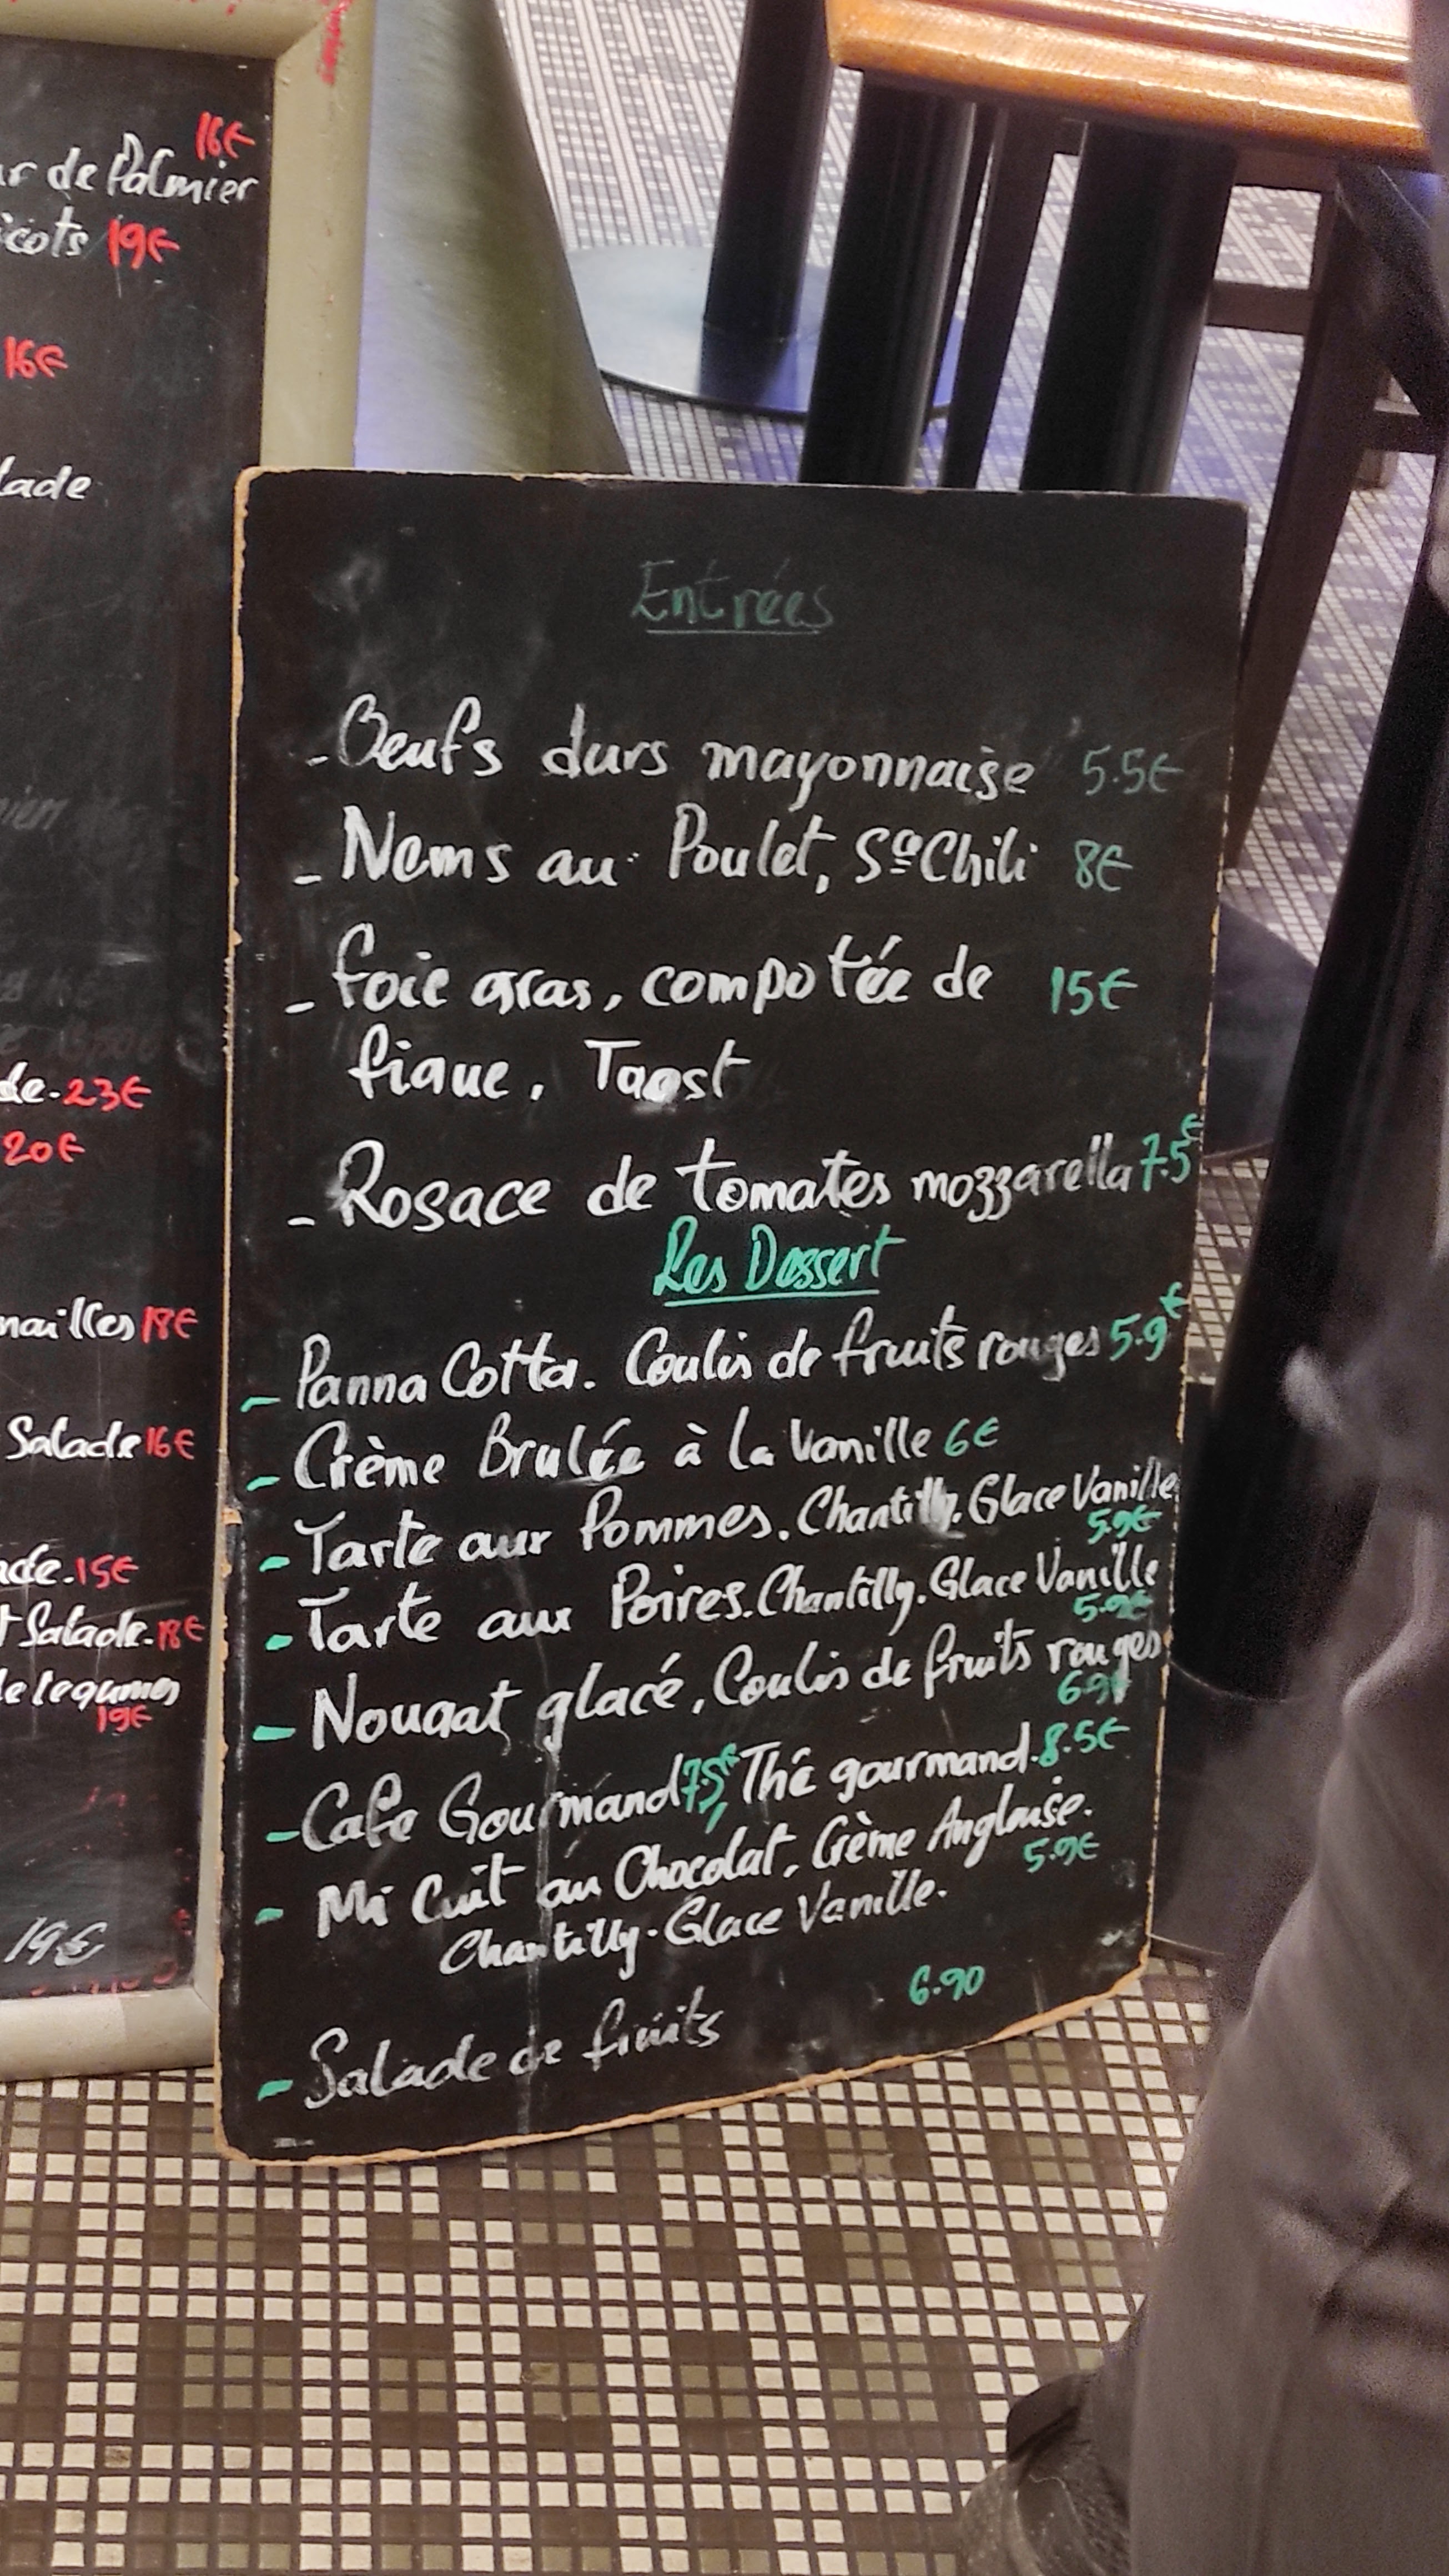 16€
de Palmier
19€
16€
23€
20€
18€
Salade 16€
15€
Salade. 18€
legumes
19€
19€
Entrées
- Oeufs durs mayonnaise 5.5€
- Nems au Poulet, Sce Chili 8€
- foie gras, compotée de 15€
figue, Taost
- Rosace de tomates mozzarella 7.5€
Les Dessert
- Panna Cotta. Coulis de fruits rouges 5.9€
- Crème Brulée à la Vanille 6€
- Tarte aux Pommes. Chantilly. Glace Vanille
5.9€
- Tarte aux Poires. Chantilly. Glace Vanille
5.9€
- Nougat glacé, Coulis de fruits rouges
6.9€
- Cafe Gourmand 7.5€, Thé gourmand. 8.5€
- Mi Cuit au Chocolat, Crème Anglaise.
5.9€
Chantilly. Glace Vanille.
6.90
- Salade de fruits